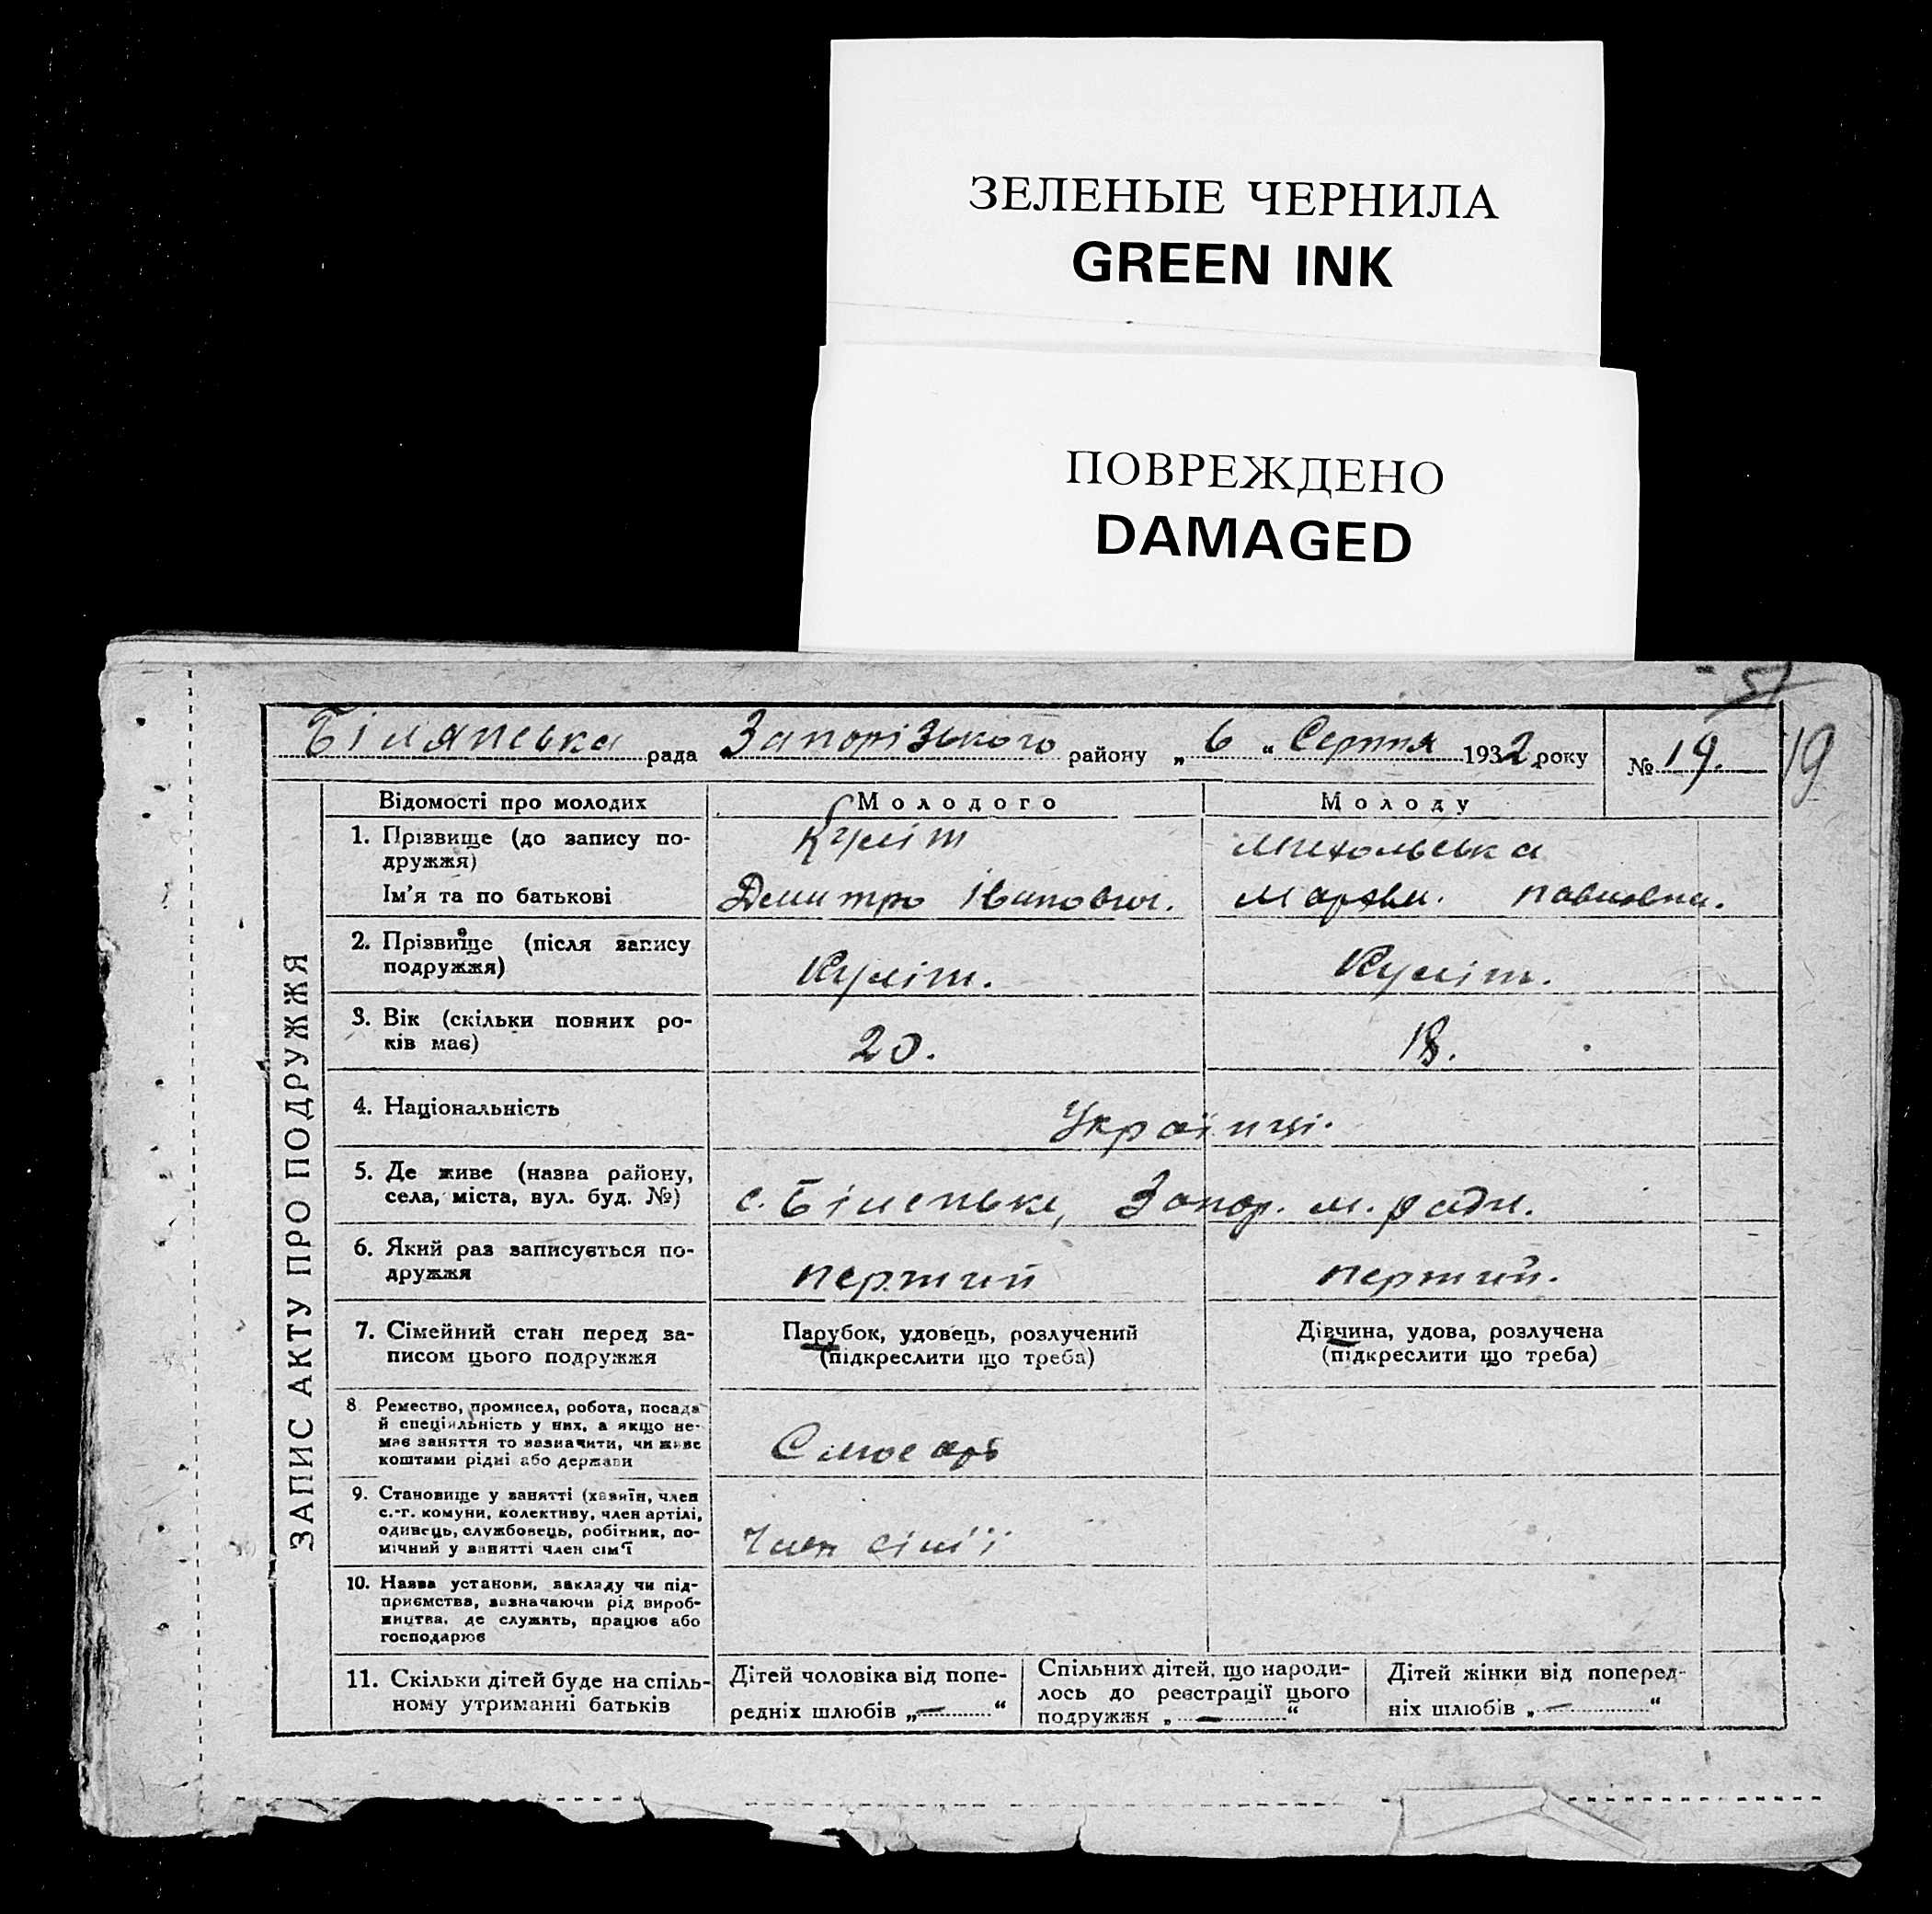 ЗЕЛЕНЫЕ ЧЕРНИЛА
GREEN INK
ПОВРЕЖДЕНО
DAMAGED
51
Білянська рада Запорізького району „ 6 “ Серпня 1932 року № 19. 19
ЗАПИС АКТУ ПРО ПОДРУЖЖЯ
Відомості про молодих Молодого Молоду
1. Прізвище (до запису по-
дружжя)
Куліш
Ім'я та по батькові Дмитро Іванович. Павловна.
2. Прізвище (після запису
подружжя)
Куліш. Куліш.
3. Вік (скільки повних ро-
ків має)
20. 18.
4. Національність Українці.
5. Де живе (назва району,
села, міста, вул. буд. №)
с. Біленьке, Запор. м. ради.
6. Який раз записується по-
дружжя
перший перший.
7. Сімейний стан перед за-
писом цього подружжя
Парубок, удовець, розлучений
(підкреслити що треба)
Дівчина, удова, розлучена
(підкреслити що треба)
8. Ремество, промисел, робота, посада
й спеціяльність у них, а якщо не-
має заняття то зазначити, чи живе
коштами рідні або держави
Слюсарь
9. Становище у занятті (хазяїн, член
с.-г. комуни, колективу, член артілі,
одинець, службовець, робітник, по-
мічний у занятті член сім'ї
Член сім'ї
10. Назва установи, закладу чи під-
приємства, зазначаючи рід вироб-
ництва, де служить, працює або
господарює
11. Скільки дітей буде на спіль-
ному утриманні батьків
Дітей чоловіка від попе-
редніх шлюбів „ — “
Спільних дітей, що народи-
лось до реєстрації цього
подружжя „ — “
Дітей жінки від поперед-
ніх шлюбів „ — “